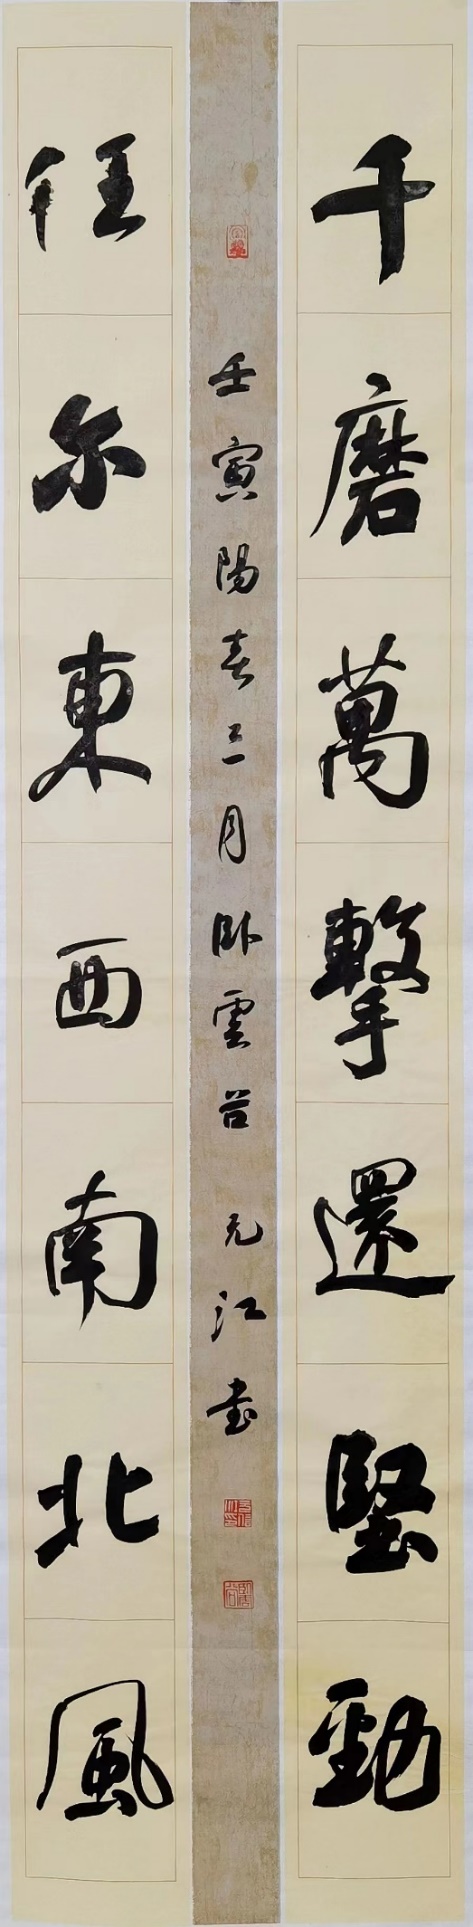 千磨萬擊還堅勁
壬寅陽春三月卧雲谷 元江書
任尔東西南北風